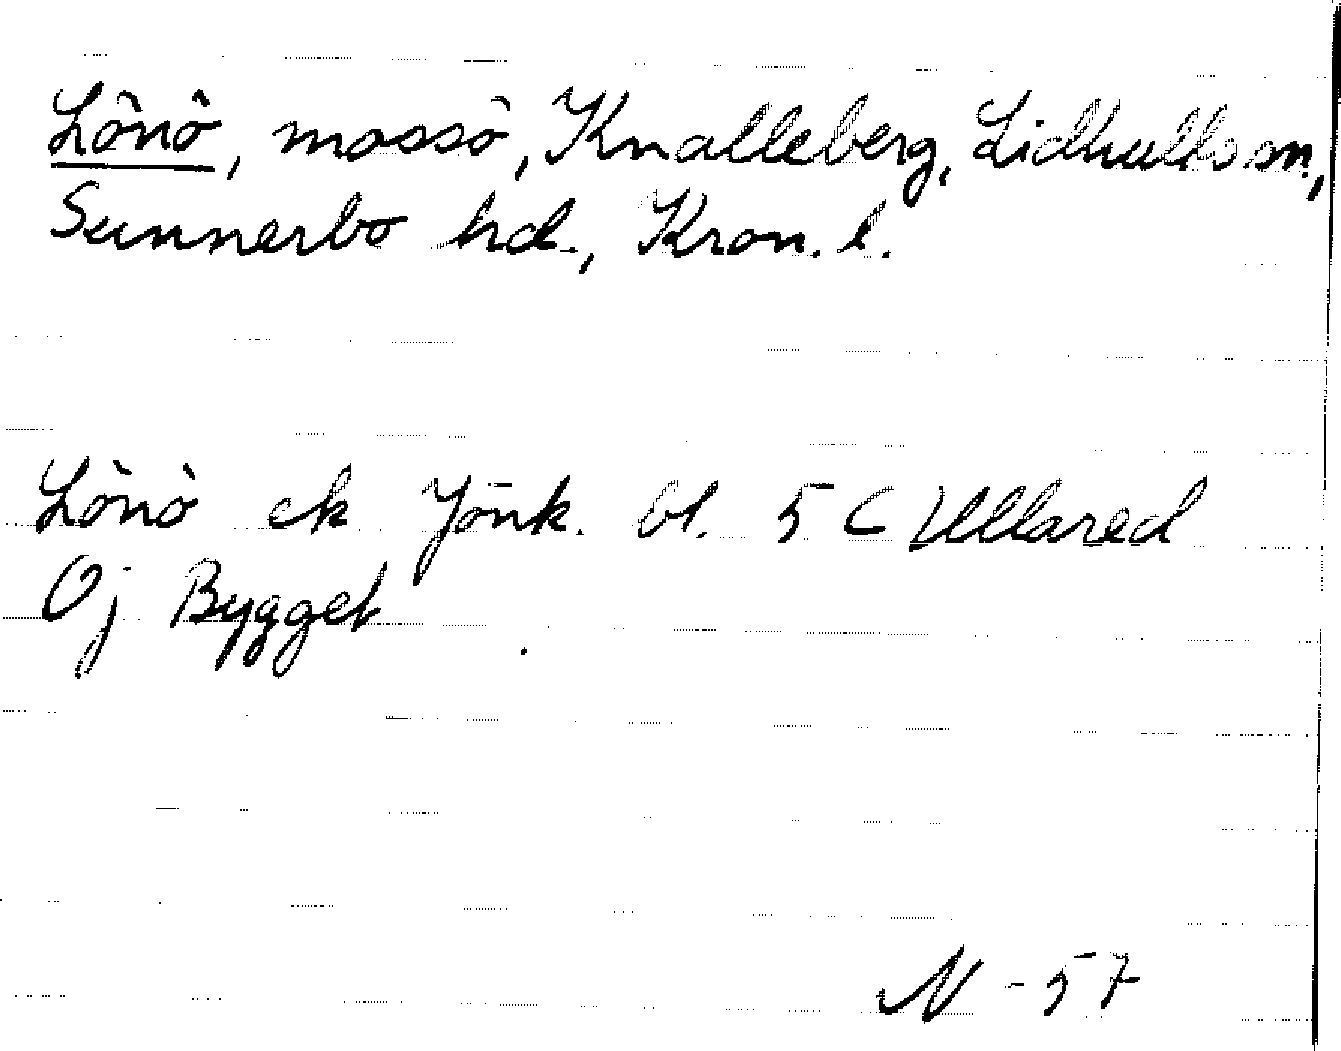 Lönö, mossö, Knalleberg, Lidhults sn,
Sunnerbo hd., Kron. l.
Lönö ek Jönk. bl. 5 C Ullared
Oj Bygget
N - 57